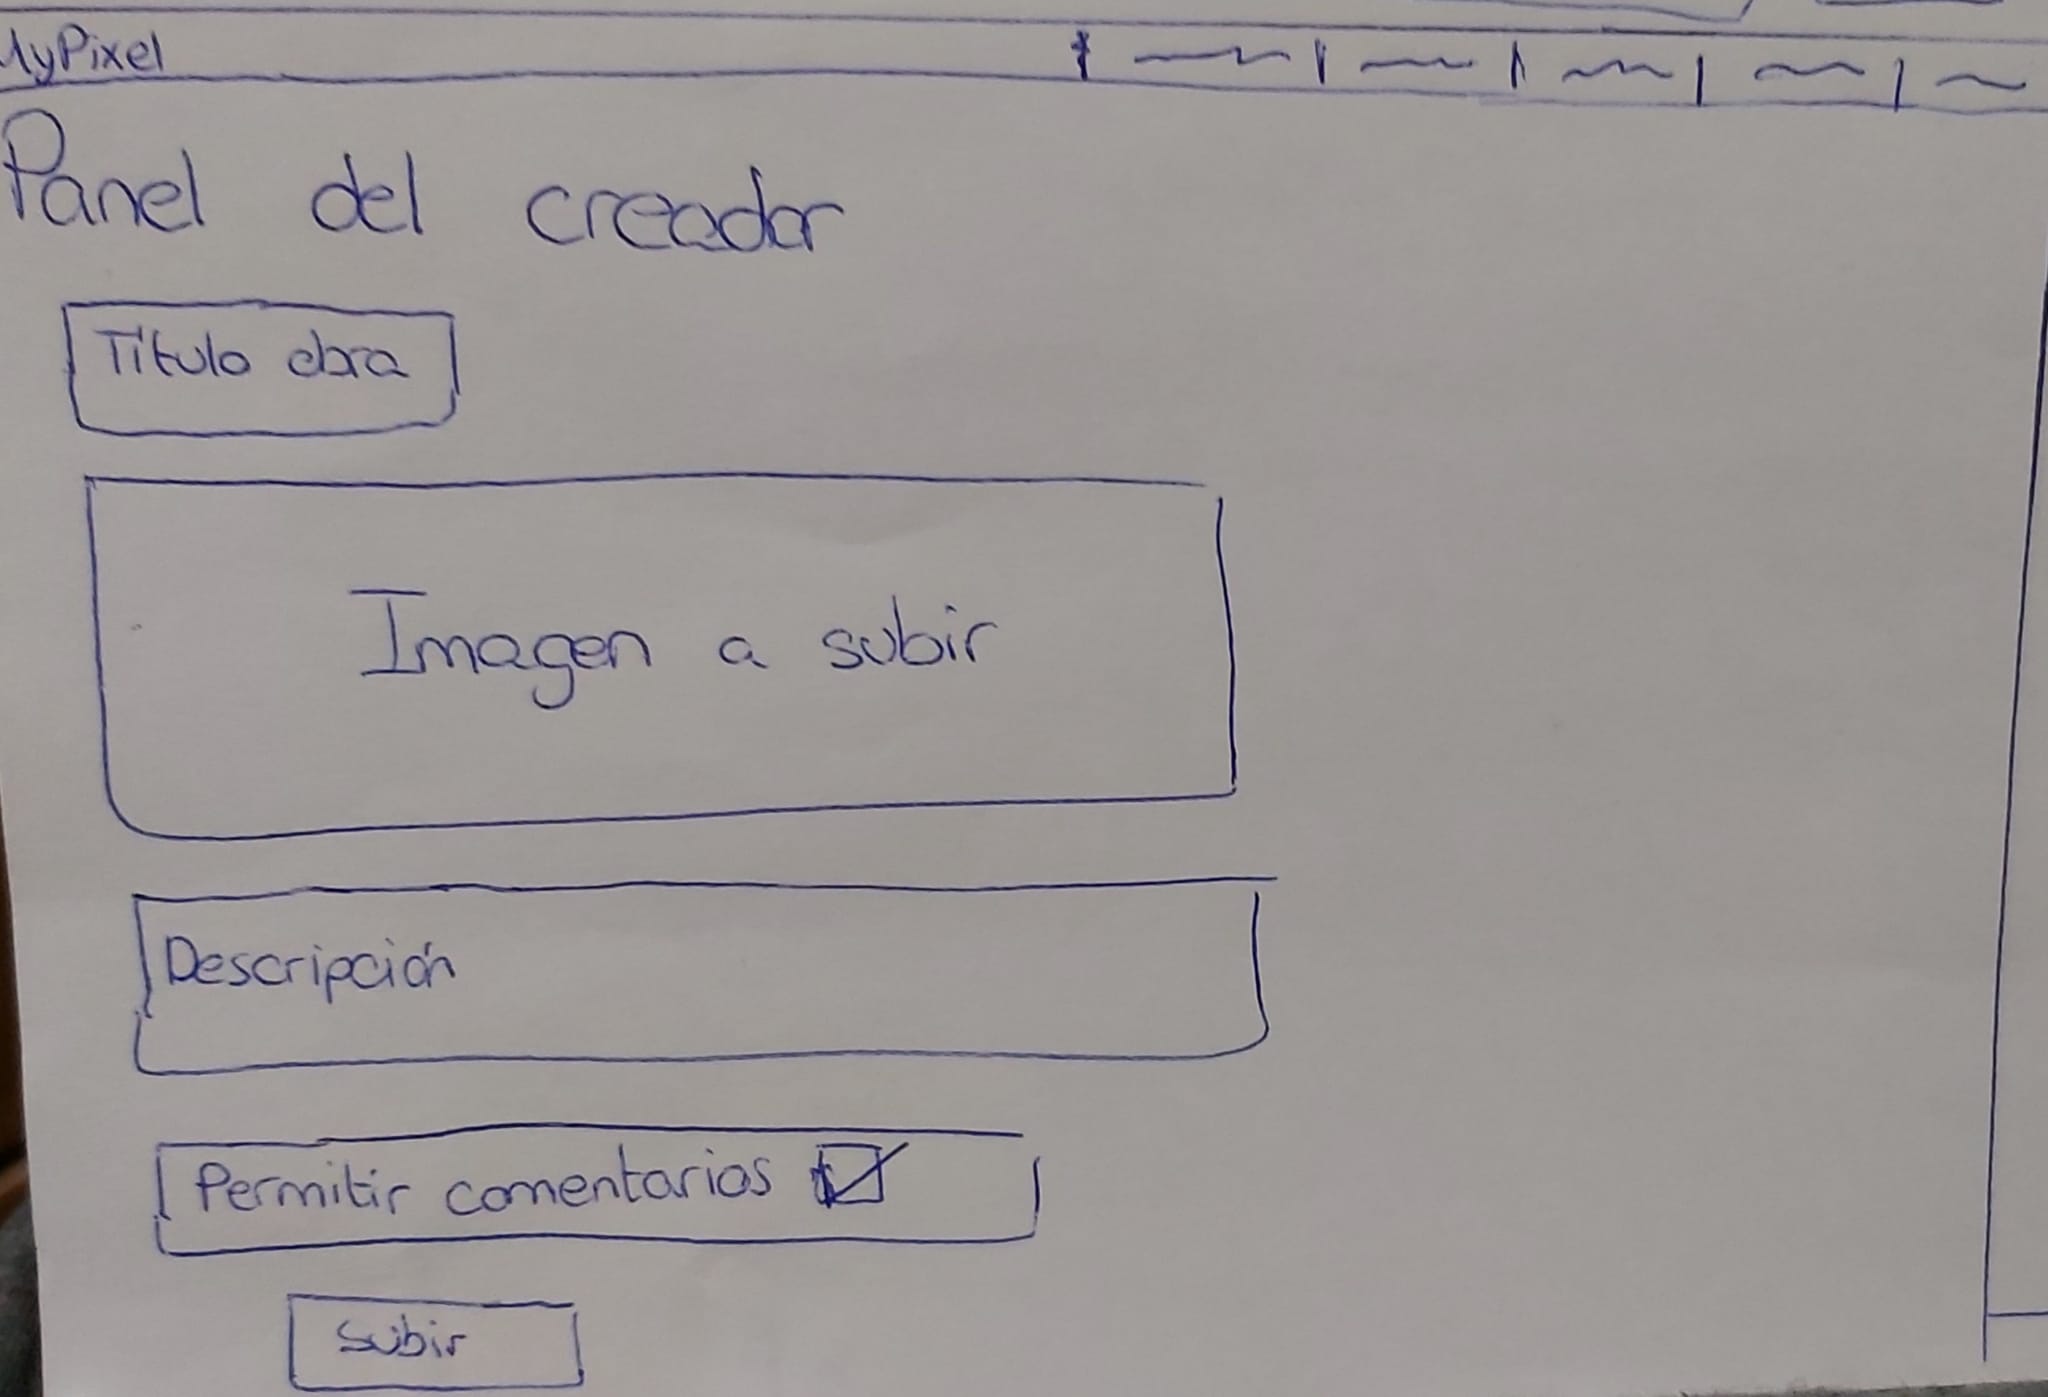 MyPixel
Panel del creador
Título obra
Imagen a subir
Descripción
Permitir comentarios
Subir